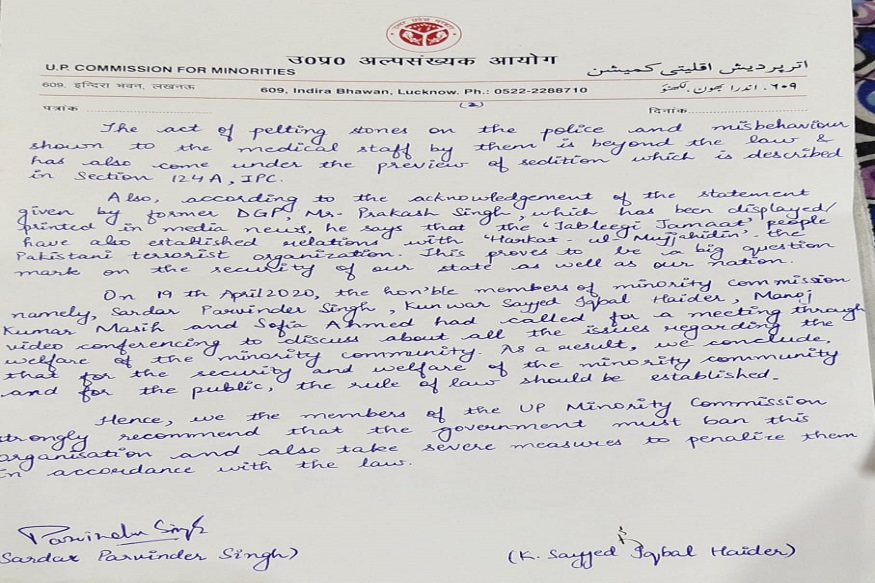 उ०प्र० अल्पसंख्यक आयोग
U.P. COMMISSION FOR MINORITIES
اتر پردیش اقلیتی کمیشن
609, इन्दिरा भवन, लखनऊ
609, Indira Bhawan, Lucknow. Ph.: 0522-2288710
۶۰۹، اندرا بھون، لکھنؤ
पत्रांक
(2)
दिनांक
The act of pelting stones on the police and misbehaviour
shown to the medical staff by them is beyond the law &
has also come under the preview of sedition which is described
in Section 124A, IPC.
Also, according to the acknowledgement of the statement
given by former DGP, Mr. Prakash Singh, which has been displayed/
printed in media news, he says that the 'Tableegi Jamaat' people
have also established relations with 'Harkat-ul-Mujjahidin' the
Pakistani terrorist organization. This proves to be a big question
mark on the security of our state as well as our nation.
On 19th April 2020, the hon'ble members of minority commission
namely, Sardar Parvinder Singh, Kunwar Sayyed Iqbal Haider, Manoj
Kumar Masih and Sofia Ahmed had called for a meeting through
video conferencing to discuss about all the issues regarding the
welfare of the minority community. As a result, we conclude,
that for the security and welfare of the minority community
and for the public, the rule of law should be established.
Hence, we the members of the UP Minority Commission
strongly recommend that the government must ban this
organisation and also take severe measures to penalize them
in accordance with the law.
Parvinder Singh
Sardar Parvinder Singh)
(K. Sayyed Iqbal Haider)